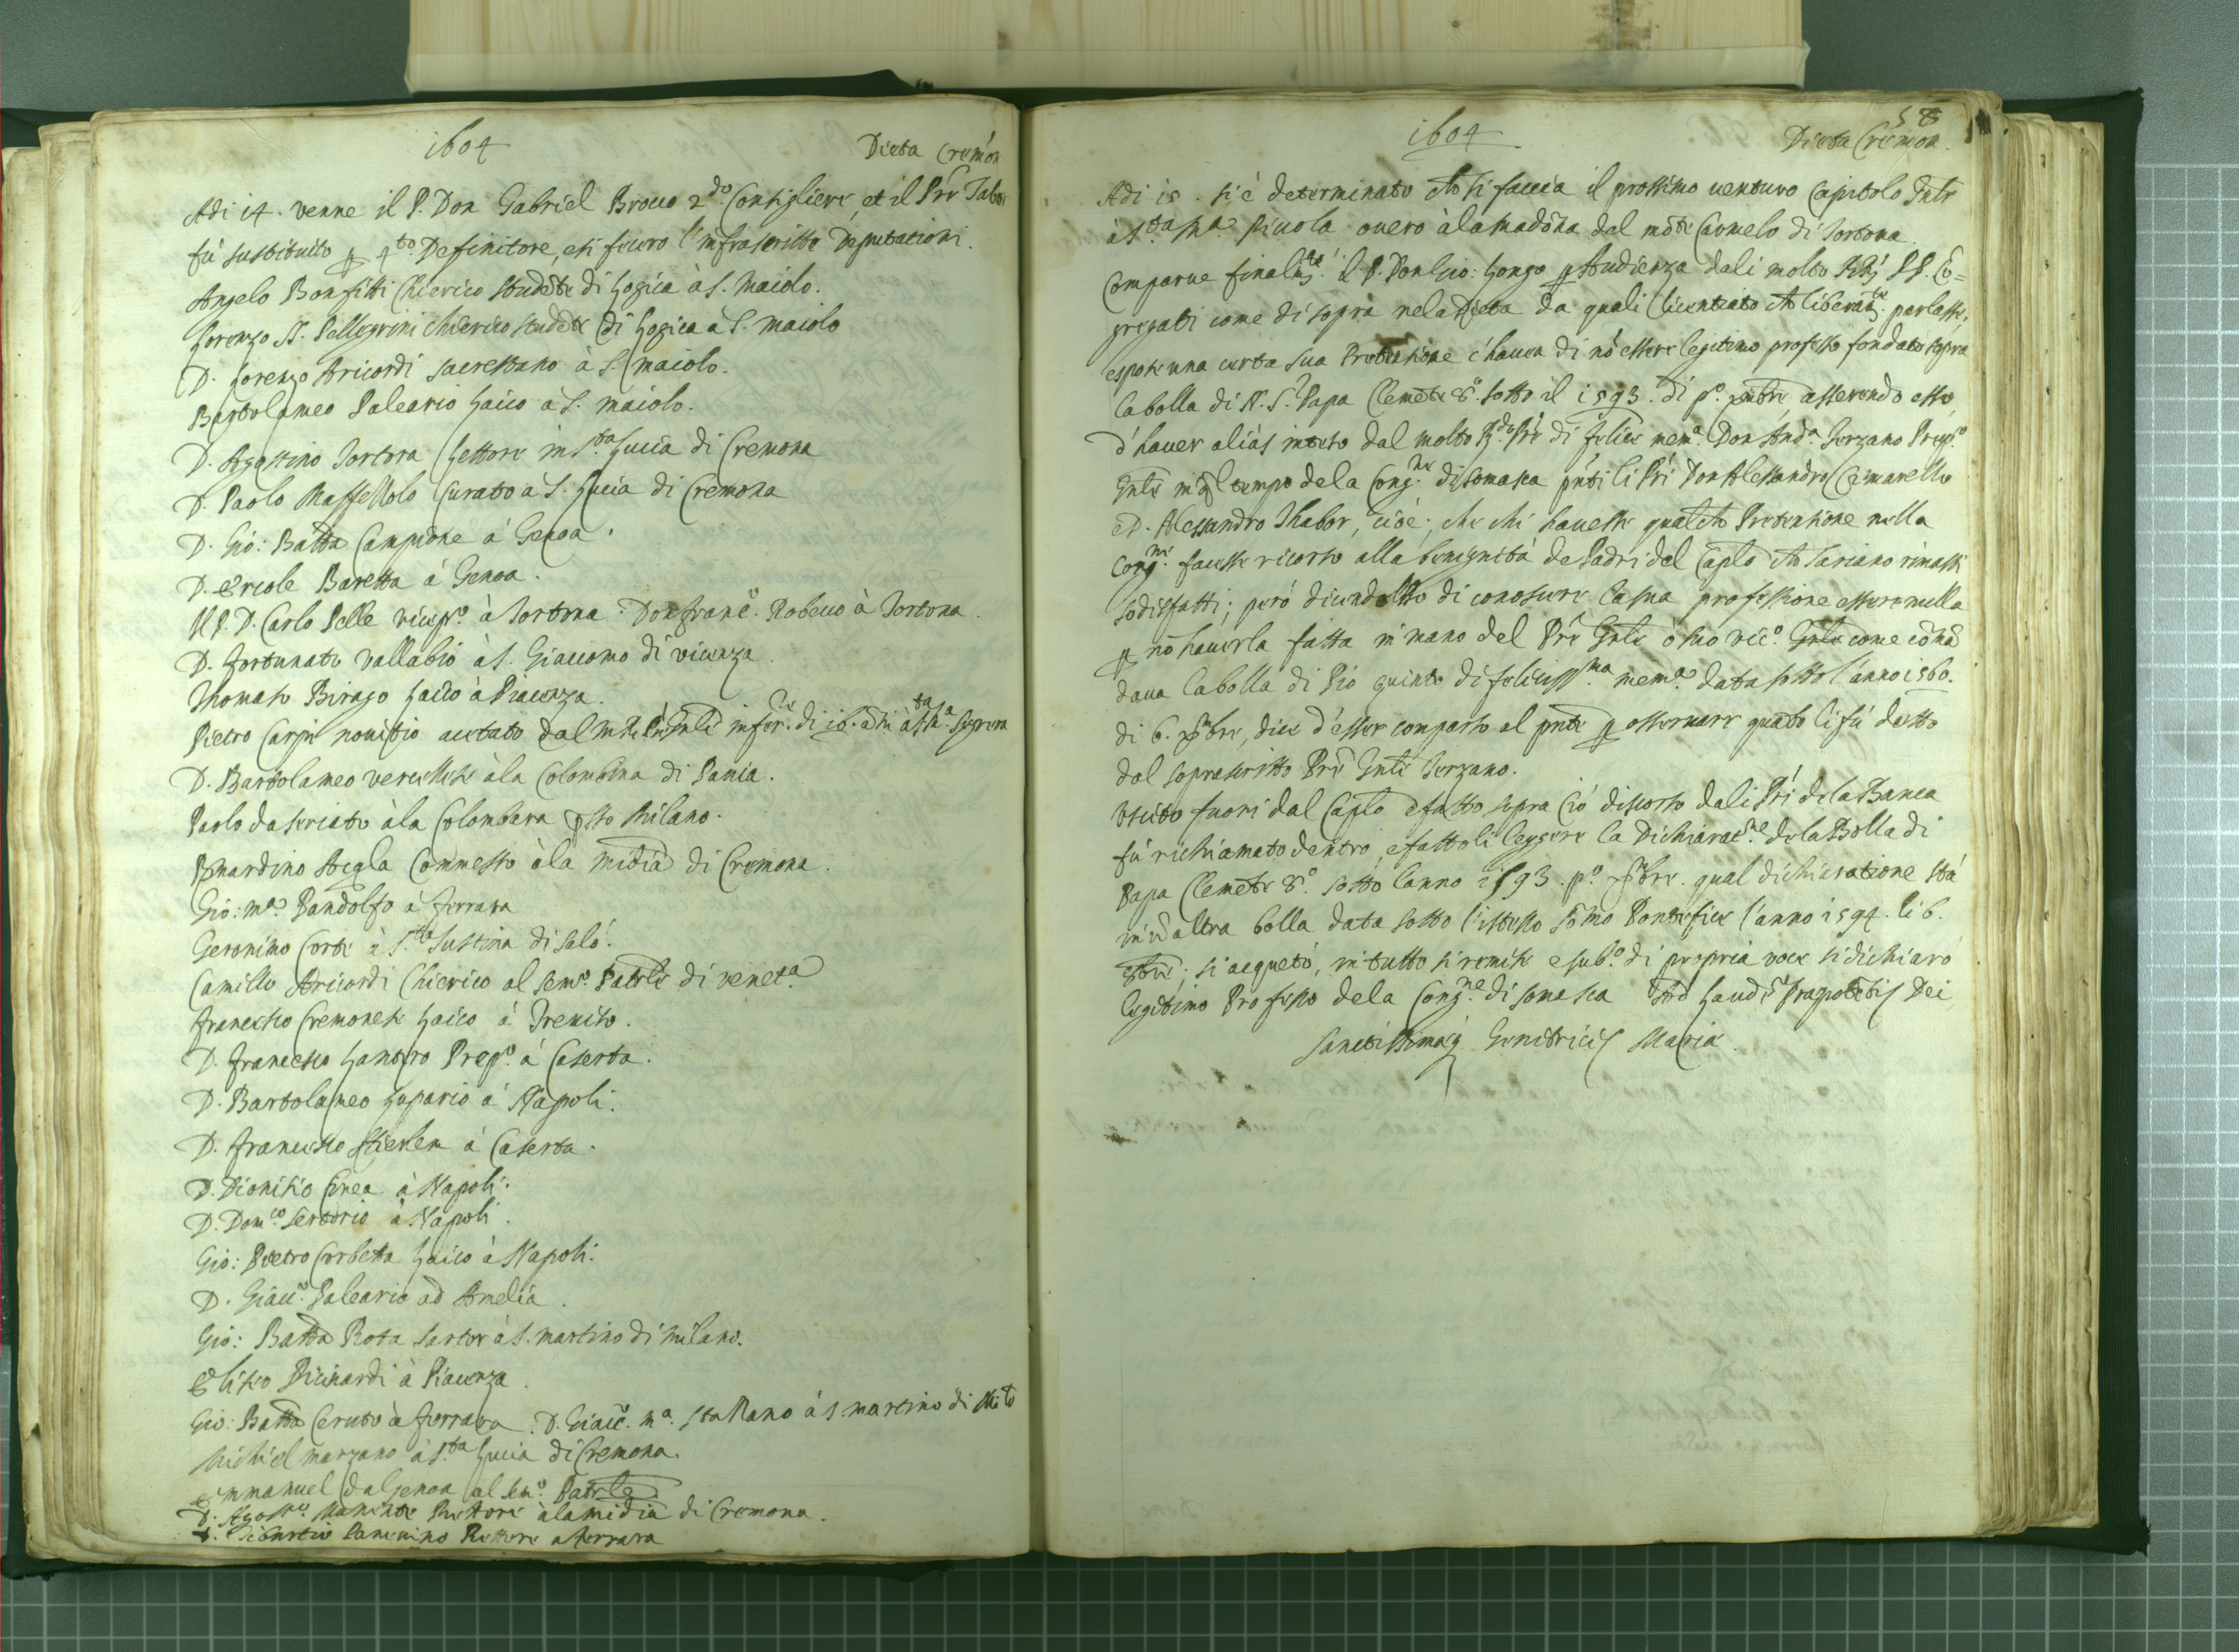 1604
Dieta Cremon
Adi 14. venne il P. Don Gabriel Brocco 2.do Consigliere, et il Prē Tabor
fù sustituito p 4.to Definitore, eti fecero l'infrascritte Deputationi.
Angelo Bonfitti Chierico studēte di Logica à S. Maiolo.
Lorenzo Pellegrini chierico studēte di Logica a S. Maiolo
D. Lorenzo Aricordi sacrestano à S. Maiolo.
Bartolameo Paleario Laico à S. Maiolo.
D. Agostino Tortora Lettore in S.ta Lucia di Cremona
D. Paolo Maffellolo Curato a S. Lucia di Cremona
D. Gio: Batta Campione à Genoa.
D. Ercole Baretta à Genoa.
Il P. D. Carlo Pelle vicepr.o à Tortona. Don Franc.o Robecco à Tortona.
D. Fortunato Vallabio à S. Giacomo di Vicenza.
Thomaso Birago Laico à Piacenza.
Pietro Carpi novitio accetato dal di 16. à S.ta M.a
D. Bartolameo Vercellese àla Colombina di Pavia.
Paolo da Seriate àla Colombara Milano.
Bernardino Commesso àla Midīa di Cremona.
Gio: M.a Pandolfo à Ferrara
Geronimo Corte à S.ta Justina di Salò.
Camillo Aricordi Chierico al Sem.o Patrle di Venet.a
Francesco Cremonese Laico à Treviso.
D. Francesco Lantro Prep.o à Caserta.
D. Bartolameo Lupario à Napoli.
D. Francesco à Caserta.
D. Dionisio Cinea à Napoli.
D. Dom.co Sertorio à Napoli.
Gio: Pietro Corbetta Laico à Napoli.
D. Giac.o Paleario ad Amelia.
Gio: Batta Rota sartor à S. Martino di Milano.
Eliseo Picinardi à Piacenza.
Gio: Batta Ceruto à Ferrara. D. Giac.o M.a Stallano à S. Martino di Mil.o
Michiel Marzano à S.ta Lucia di Cremona.
Emmanuel da Genoa al Sem.o Patrle
D. Agost.o Rettore àla Midīa di Cremona.
D. Tiburtio Rettore a Ferrara
58
1604
Dieta Cremon.
Adi 15. si è determinato che si faccia il prossimo venturo Capitolo Gnle
à S.ta M.a Picciola overo àla Madōna del mōte Carmelo di Tortona.
Comparve finalm.te il P. Don Gio: Longo p Audienza dali molto RR. PP. Cō=
gregati come di sopra nela Dieta da quali licentiato che liberam.te parlasse,
espose una certa sua Pretensione c'havea di nō essere legitimo professo fondato sopra
la bolla di N. S. Papa Clemēte 8.o sotto il 1593. di p.o asserendo esso
d'haver aliàs inteso dal molto R.do Prē di felice mem.a Don And.a Terzano Prep.o
Gnle in tempo dela Cong.ne di Somasca pnti li Pri Don Alessandro Cimarello
e D. Alessandro Thabor, cioè, che chi havesse qualche Pretensione nella
Cong.ne facesse ricorso alla benignità de Padri del Caplo che sariano rimasti
sodisfatti; però dicendosi di conoscere la sua professione essere nulla
p nō haverla fatta in mano del Prē Gnle ò suo vic.o Gnle come cōmā
dava la bolla di Pio quinto di feliciss.ma mem.a data sotto l'anno 1560.
di 6. xbre, dice d'esser comparso al pnte p osservare quāto li fù detto
dal soprascritto Prē Gnle Terzano.
Uscito fuori dal Caplo e fatto sopra ciò discorso dali Pri dela Banca
fù richiamato dentro, e fattoli leggere la Dichiarac.ne dela Bolla di
Papa Clemēte 8.o sotto l'anno 1593. p.o xbre. qual dichiaratione stà
in ū altra bolla data sotto l'istesso Sōmo Pontefice l'anno 1594. li 6.
si acquetò, in tutto si remise e sub.o di propria voce si dichiarò
legitimo Professo dela Cong.ne di Somasca Ad Laudē Dei,
Sanctissimaeq Genitricis Mariae.